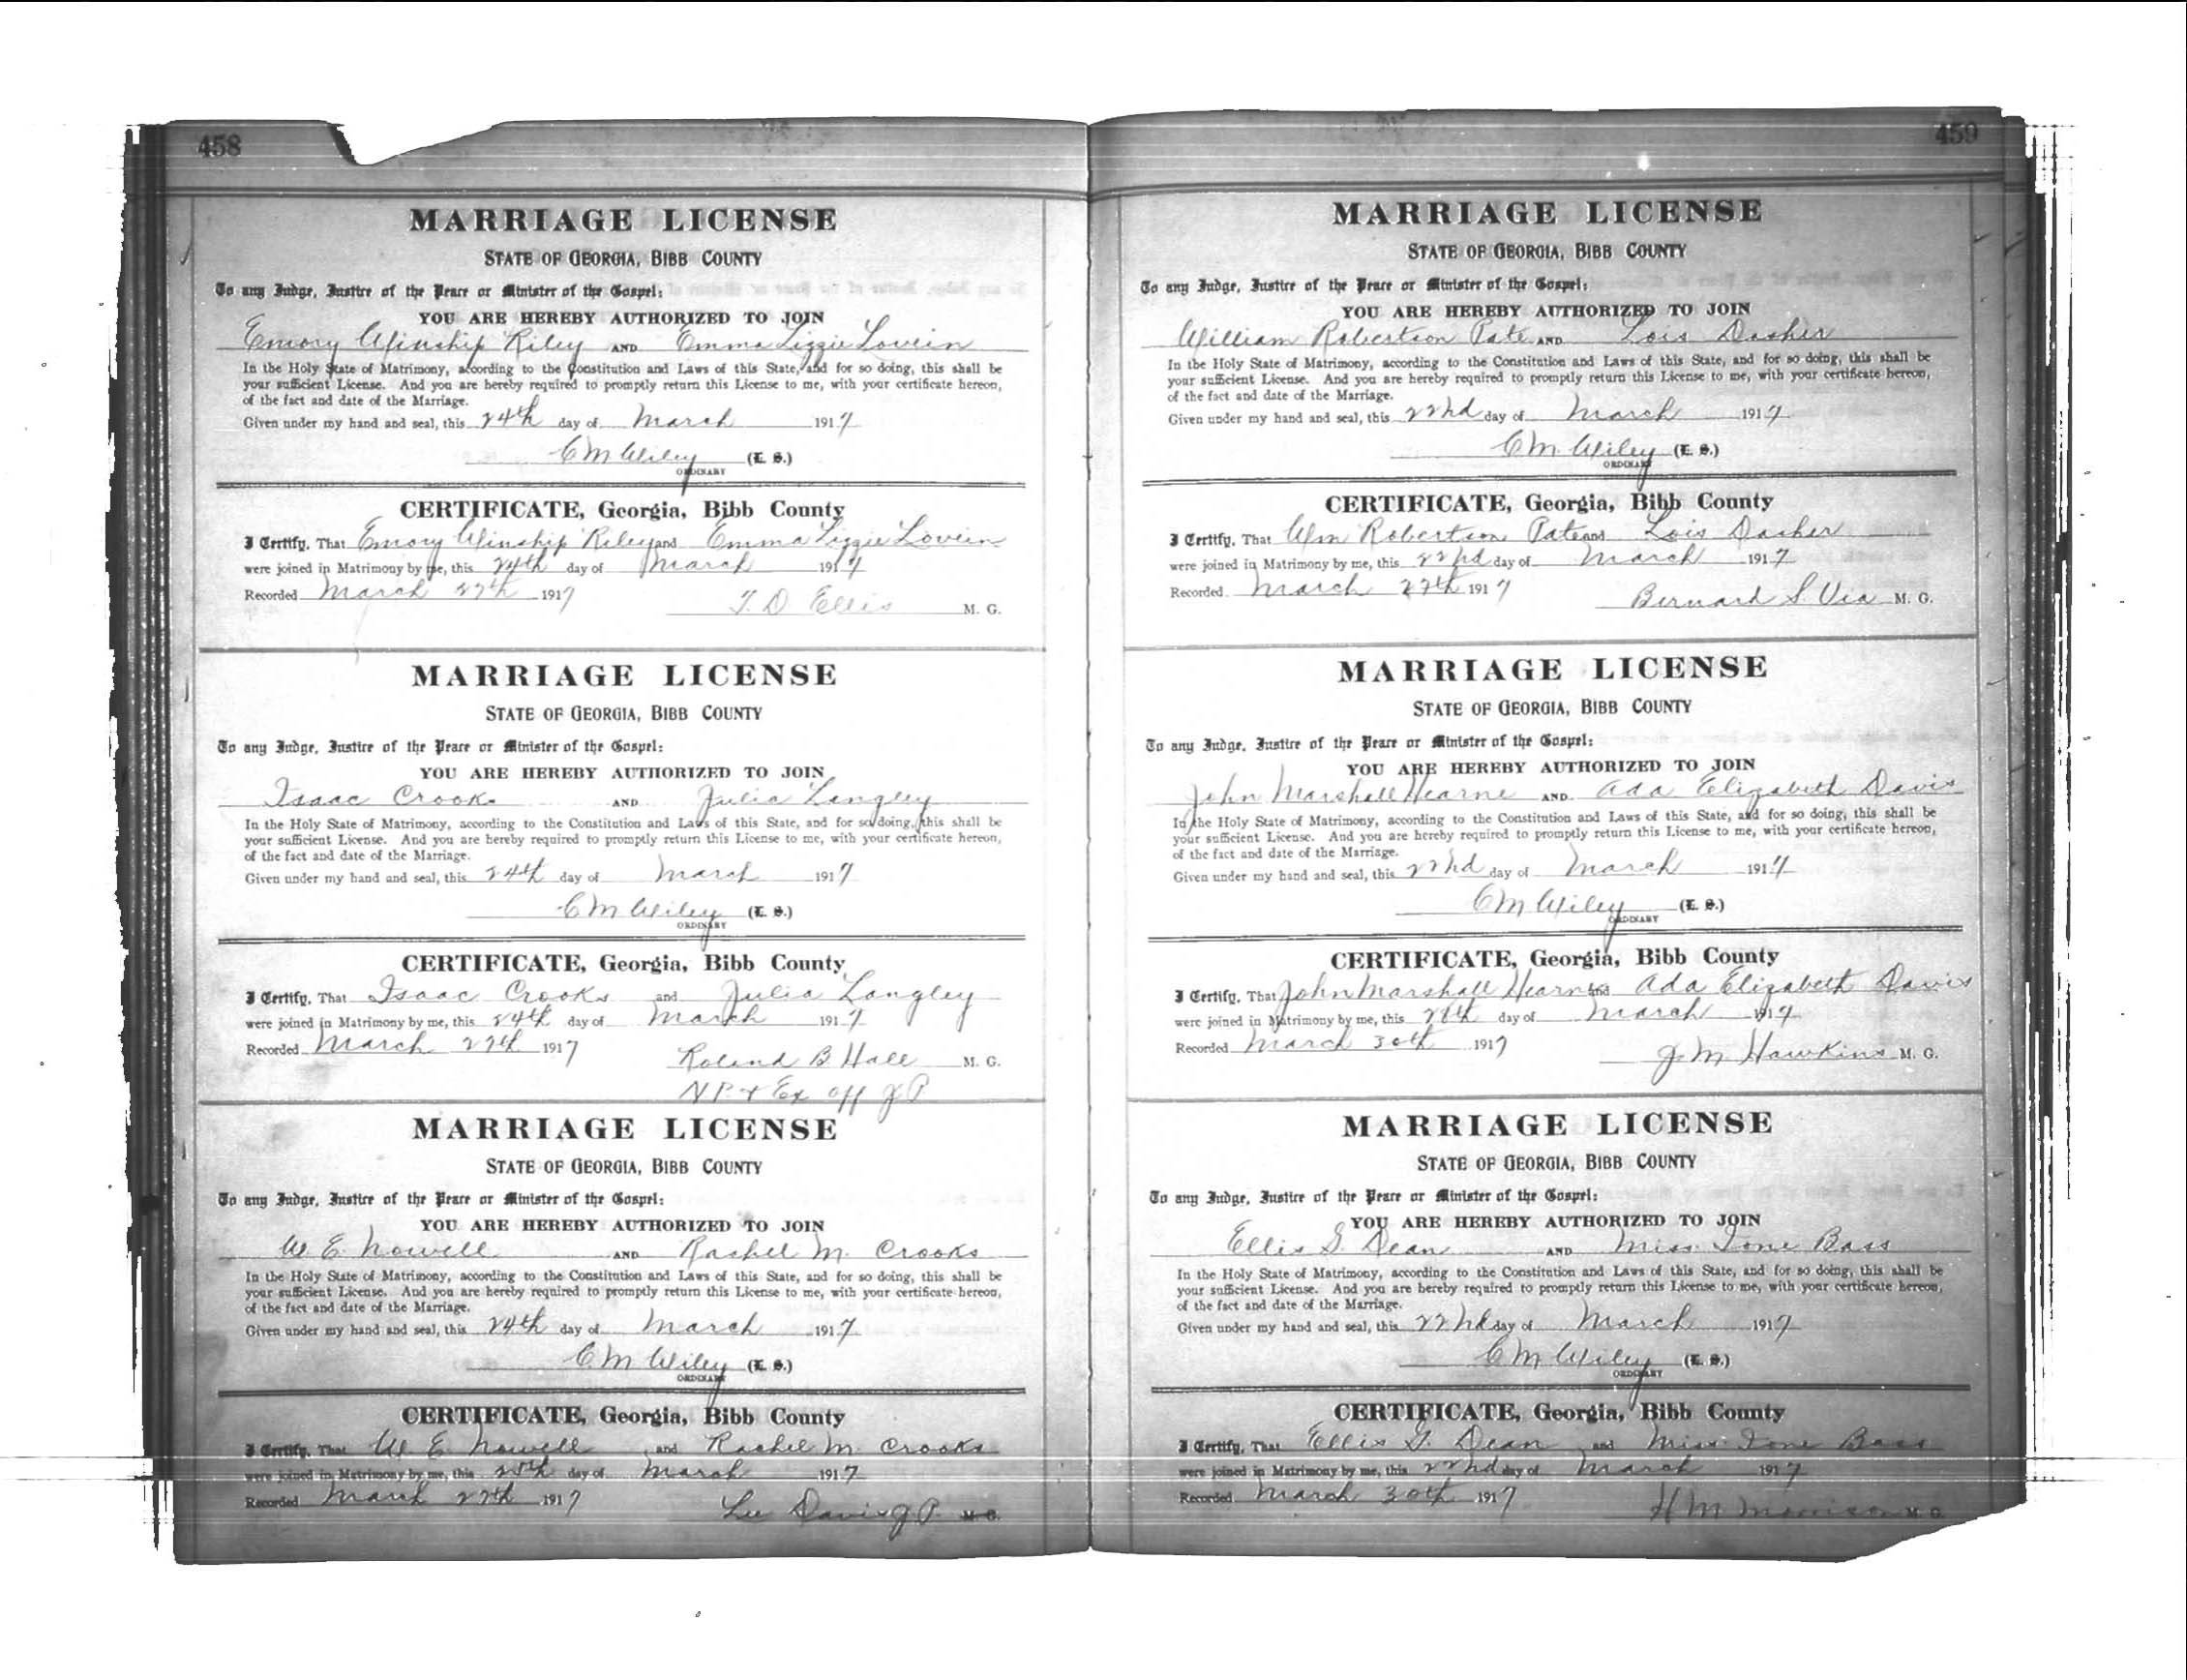 458
MARRIAGE LICENSE
STATE OF GEORGIA, BIBB COUNTY
To any Judge, Justice of the Peace or Minister of the Gospel:
YOU ARE HEREBY AUTHORIZED TO JOIN
Emory Winship Riley AND Emma Lizzie Lovein
In the Holy State of Matrimony, according to the Constitution and Laws of this State, and for so doing, this shall be
your sufficient License. And you are hereby required to promptly return this License to me, with your certificate hereon,
of the fact and date of the Marriage.
Given under my hand and seal, this 24th day of March 1917
C M Wiley (L. S.)
ORDINARY
CERTIFICATE, Georgia, Bibb County
I Certify, That Emory Winship Riley and Emma Lizzie Lovein
were joined in Matrimony by me, this 24th day of March 1917
Recorded March 27th 1917 T. D Ellis M. G.
MARRIAGE LICENSE
STATE OF GEORGIA, BIBB COUNTY
To any Judge, Justice of the Peace or Minister of the Gospel:
YOU ARE HEREBY AUTHORIZED TO JOIN
Isaac Crooks AND Julia Langley
In the Holy State of Matrimony, according to the Constitution and Laws of this State, and for so doing, this shall be
your sufficient License. And you are hereby required to promptly return this License to me, with your certificate hereon,
of the fact and date of the Marriage.
Given under my hand and seal, this 24th day of March 1917
C M Wiley (L. S.)
ORDINARY
CERTIFICATE, Georgia, Bibb County
I Certify, That Isaac Crooks and Julia Langley
were joined in Matrimony by me, this 24th day of March 1917
Recorded March 27th 1917 Roland B Hall M. G.
N P. & Ex off J P.
MARRIAGE LICENSE
STATE OF GEORGIA, BIBB COUNTY
To any Judge, Justice of the Peace or Minister of the Gospel:
YOU ARE HEREBY AUTHORIZED TO JOIN
W E. Nowell AND Rachel M. Crooks
In the Holy State of Matrimony, according to the Constitution and Laws of this State, and for so doing, this shall be
your sufficient License. And you are hereby required to promptly return this License to me, with your certificate hereon,
of the fact and date of the Marriage.
Given under my hand and seal, this 24th day of March 1917
C. M Wiley (L. S.)
ORDINARY
CERTIFICATE, Georgia, Bibb County
I Certify, That W. E. Nowell and Rachel M. Crooks
were joined in Matrimony by me, this 25th day of March 1917
Recorded March 27th 1917 Lee Davis J P. M. G.
459
MARRIAGE LICENSE
STATE OF GEORGIA, BIBB COUNTY
To any Judge, Justice of the Peace or Minister of the Gospel:
YOU ARE HEREBY AUTHORIZED TO JOIN
William Robertson Pate AND Lois Dasher
In the Holy State of Matrimony, according to the Constitution and Laws of this State, and for so doing, this shall be
your sufficient License. And you are hereby required to promptly return this License to me, with your certificate hereon,
of the fact and date of the Marriage.
Given under my hand and seal, this 22nd day of March 1917
C M. Wiley (L. S.)
ORDINARY
CERTIFICATE, Georgia, Bibb County
I Certify, That Wm Robertson Pate and Lois Dasher
were joined in Matrimony by me, this 22nd day of March 1917
Recorded March 27th 1917 Bernard S. Via M. G.
MARRIAGE LICENSE
STATE OF GEORGIA, BIBB COUNTY
To any Judge, Justice of the Peace or Minister of the Gospel:
YOU ARE HEREBY AUTHORIZED TO JOIN
John Marshall Hearne AND Ada Elizabeth Davis
In the Holy State of Matrimony, according to the Constitution and Laws of this State, and for so doing, this shall be
your sufficient License. And you are hereby required to promptly return this License to me, with your certificate hereon,
of the fact and date of the Marriage.
Given under my hand and seal, this 22nd day of March 1917
C M Wiley (L. S.)
ORDINARY
CERTIFICATE, Georgia, Bibb County
I Certify, That John Marshall Hearne and Ada Elizabeth Davis
were joined in Matrimony by me, this 28th day of March 1917
Recorded March 30th 1917 J. M Hawkins M. G.
MARRIAGE LICENSE
STATE OF GEORGIA, BIBB COUNTY
To any Judge, Justice of the Peace or Minister of the Gospel:
YOU ARE HEREBY AUTHORIZED TO JOIN
Ellis G. Dean AND Miss Ione Bass
In the Holy State of Matrimony, according to the Constitution and Laws of this State, and for so doing, this shall be
your sufficient License. And you are hereby required to promptly return this License to me, with your certificate hereon,
of the fact and date of the Marriage.
Given under my hand and seal, this 22nd day of March 1917
C M Wiley (L. S.)
ORDINARY
CERTIFICATE, Georgia, Bibb County
I Certify, That Ellis G. Dean and Miss Ione Bass
were joined in Matrimony by me, this 22nd day of March 1917
Recorded March 30th 1917 H M Morrison M. G.